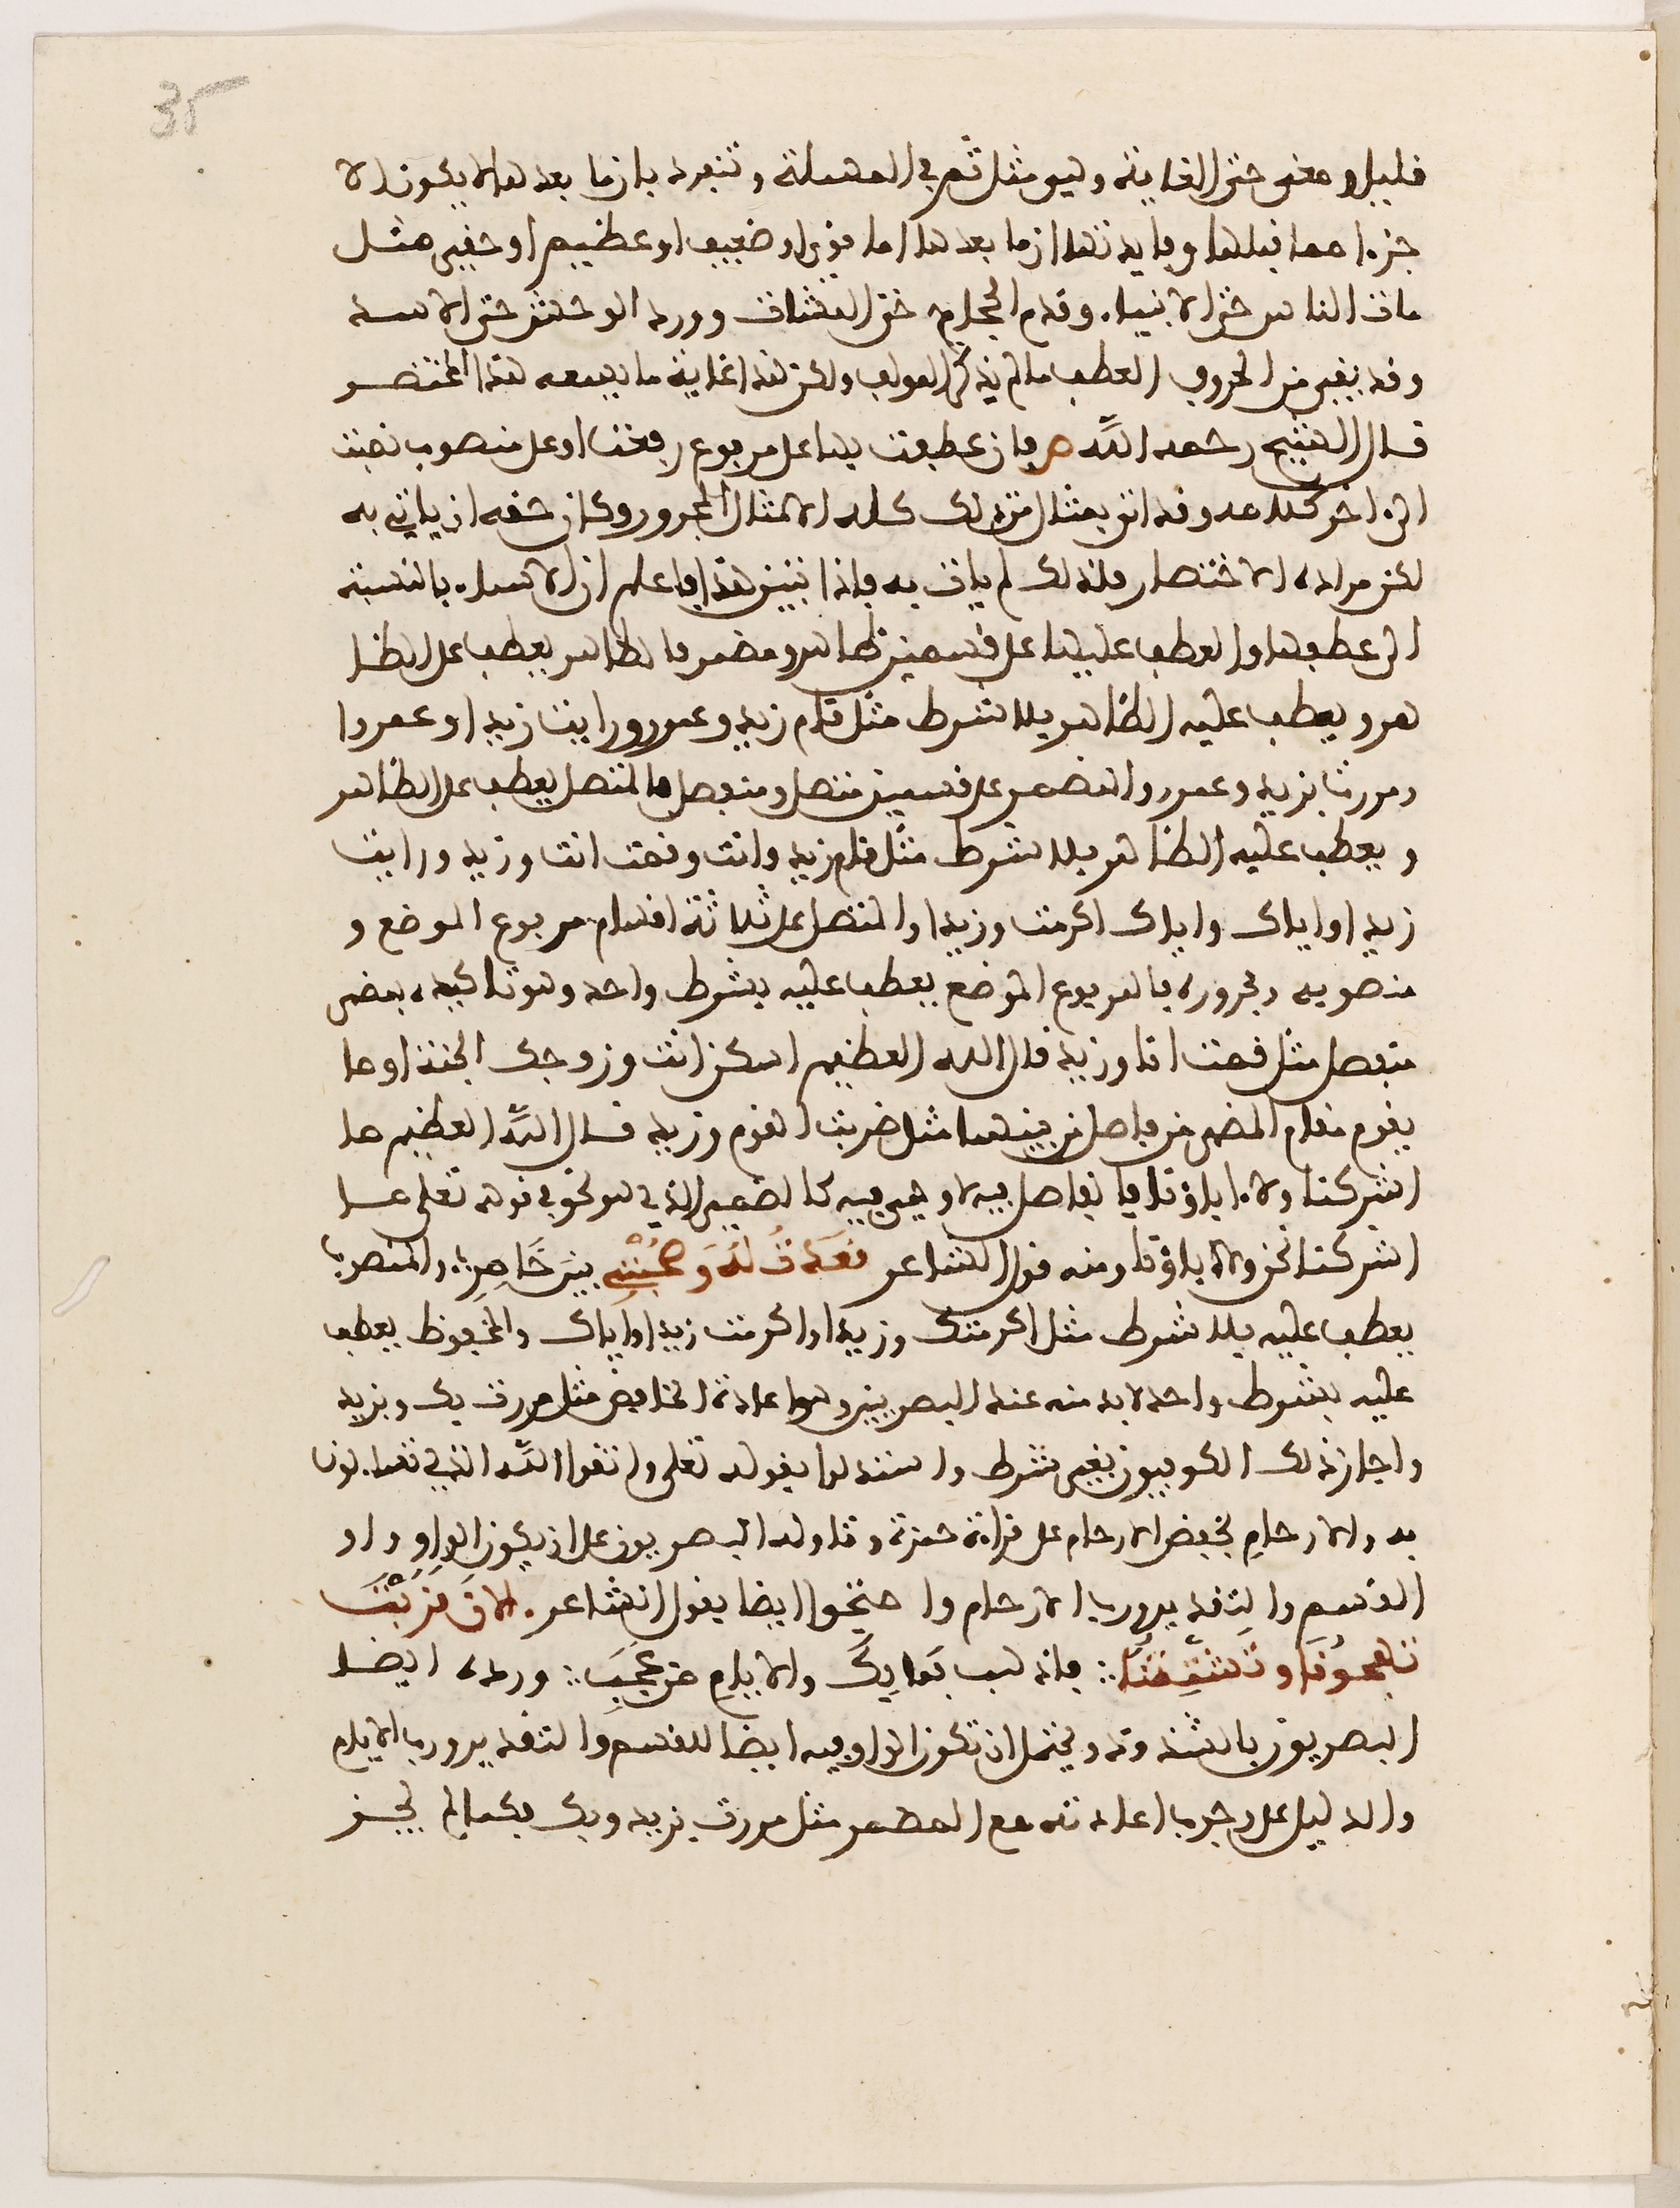 35
قليلا ومعنى حتى الغاية وهي مثل ثم في المهملة وتنفرد بان ما بعدها لا يكون الا
جزءا مما قبلها وفايدتها ان ما بعدها اما قوي او ضعيف او عظيم او حقير مثل
مات الناس حتى الانبياء وقدم الحجاج حتى المشاة وورد الوحش حتى الاسد
وقد بقي من الحروف العطف ما لم يذكره المولف ولكن هذا غاية ما يسعه هذا المختصر
قال الشيخ رحمه الله ص فان عطفت بها على مرفوع رفعت او على منصوب نصبت
الى اخر كلامه وقد اتى بمثال من ذلك كله الا مثال المجرور وكان حقه ان ياتي به
لكن مراده الاختصار فلذلك لم يات به فاذا تبين هذا فاعلم ان الاسماء بالنسبة
الى عطفها والعطف عليها على قسمين ظاهر ومضمر فالظاهر يعطف على الظا
هر ويعطف عليه الظاهر بلا شرط مثل قام زيد وعمرو ورايت زيدا وعمروا
ومررت بزيد وعمرو والمضمر على قسمين متصل ومنفصل فالمنفصل يعطف على الظاهر
ويعطف عليه الظاهر بلا شرط مثل قام زيد وانت وقمت انت وزيد ورايت
زيدا واياك واياك اكرمت وزيدا والمتصل على ثلاثة اقسام مرفوع الموضع و
منصوبه ومجروره فالمرفوع الموضع يعطف عليه بشرط واحد وهو تاكيده بمضمر
منفصل مثل قمت انا وزيد قال الله العظيم اسكن انت وزوجك الجنة او ما
يقوم مقام المضمر من فاصل من بينهما مثل ضربت القوم وزيد قال الله العظيم ما
اشركنا ولا ءاباؤنا فالفاصل فيه لا وهي فيه كالضمير الذي هو نحن في قوله تعلى ما
اشركنا نحن ولا ءاباؤنا ومنه قول الشاعر قعدت له وصحبتي بين ضارج والمنصوب
يعطف عليه بلا شرط مثل اكرمتك وزيدا واكرمت زيدا واياك والمخفوض يعطف
عليه بشرط واحد لا بد منه عند البصريين وهو اعادة الخافض مثل مررت بك وبزيد
واجاز ذلك الكوفيون بغير شرط واستدلوا بقوله تعلى واتقوا الله الذي تساءلون
به والارحام بخفض الارحام على قراءة حمزة وتاوله البصريون على ان يكون الواو واو
القسم والتقدير ورب الارحام واحتجوا ايضا بقول الشاعر فالان قربت
تهجونا وتشتمنا فاذهب فما بك والايام من عجب ورده ايضا
البصريون بالشذوذ ويحتمل ان تكون الواو فيه ايضا للقسم والتقدير ورب الايام
والدليل على وجوب اعادته مع المضمر مثل مررت بزيد وبك فكما لم يجز